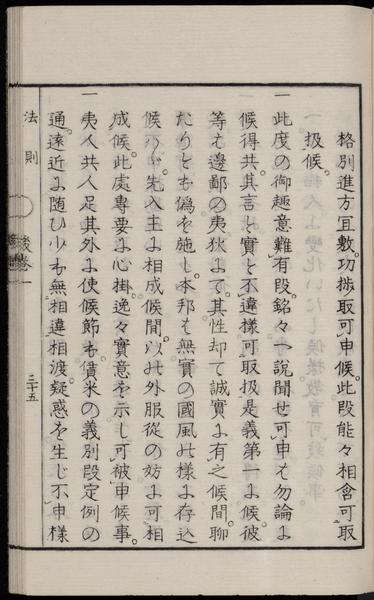 格別進方宜敷。功捗取可申候。此段能々相含可取
扱候。
一此度の御趣意難有段。銘々へ說聞せ。可申も勿論よ
候得共。其言と實と不違樣可取扱是義第一よ候。彼
等も邊鄙の夷狄よて。其性却て誠實よ有之候間。聊
たりとも偽を施し。本邦も無實の國風の樣よ存込
候へバ。先入主よ相成候間。以の外服從の妨よ可相
成候。此處專要よ心掛。逸々實意を示し可被申候事。
一夷人共人足其外よ使候節も。債米の義別段定例の
通。遠近よ隨ひ少も無相違相渡。疑惑を生じ不申樣
法則
卷一
三十五